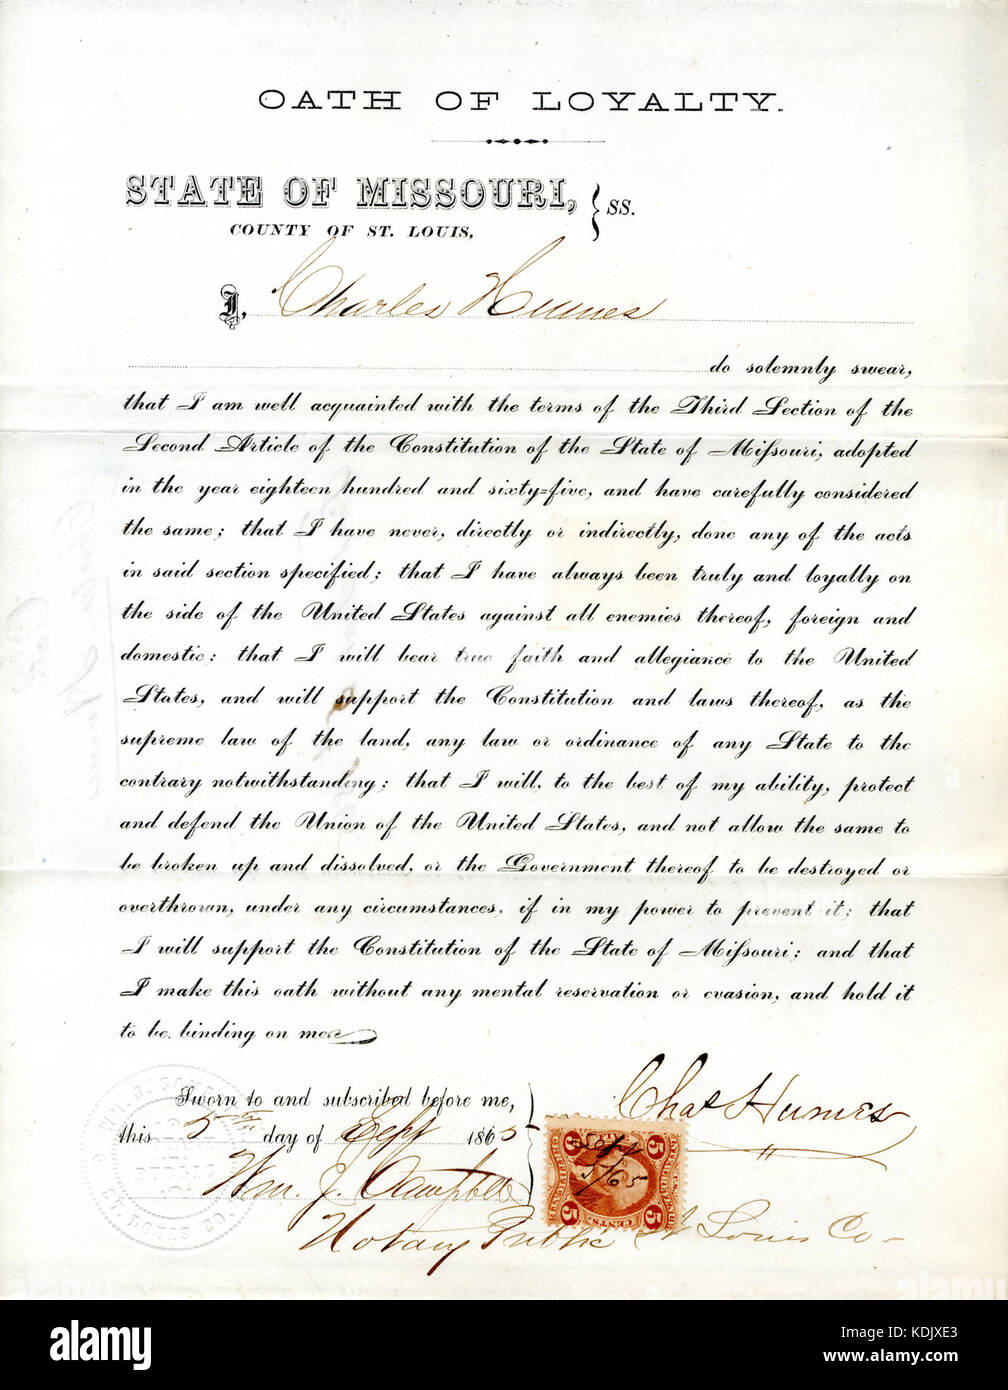 OATH OF LOYALTY.
STATE OF MISSOURI, } SS.
COUNTY OF ST. LOUIS,
I, Charles Humes
do solemnly swear,
that I am well acquainted with the terms of the Third Section of the
Second Article of the Constitution of the State of Missouri, adopted
in the year eighteen hundred and sixty=five, and have carefully considered
the same; that I have never, directly or indirectly, done any of the acts
in said section specified; that I have always been truly and loyally on
the side of the United States against all enemies thereof, foreign and
domestic: that I will bear true faith and allegiance to the United
States, and will support the Constitution and laws thereof, as the
supreme law of the land, any law or ordinance of any State to the
contrary notwithstanding; that I will, to the best of my ability, protect
and defend the Union of the United States, and not allow the same to
be broken up and dissolved, or the Government thereof to be destroyed or
overthrown, under any circumstances, if in my power to prevent it; that
I will support the Constitution of the State of Missouri; and that
I make this oath without any mental reservation or evasion, and hold it
to be binding on me.
Sworn to and subscribed before me,
Chas Humes
this 5th day of Sept 1865
Wm. J. Campbell
Notary Public St Louis Co
5 5
Sept
5/65
5 CENTS. 5
alamy
Image ID: KDJXE3
www.alamy.com